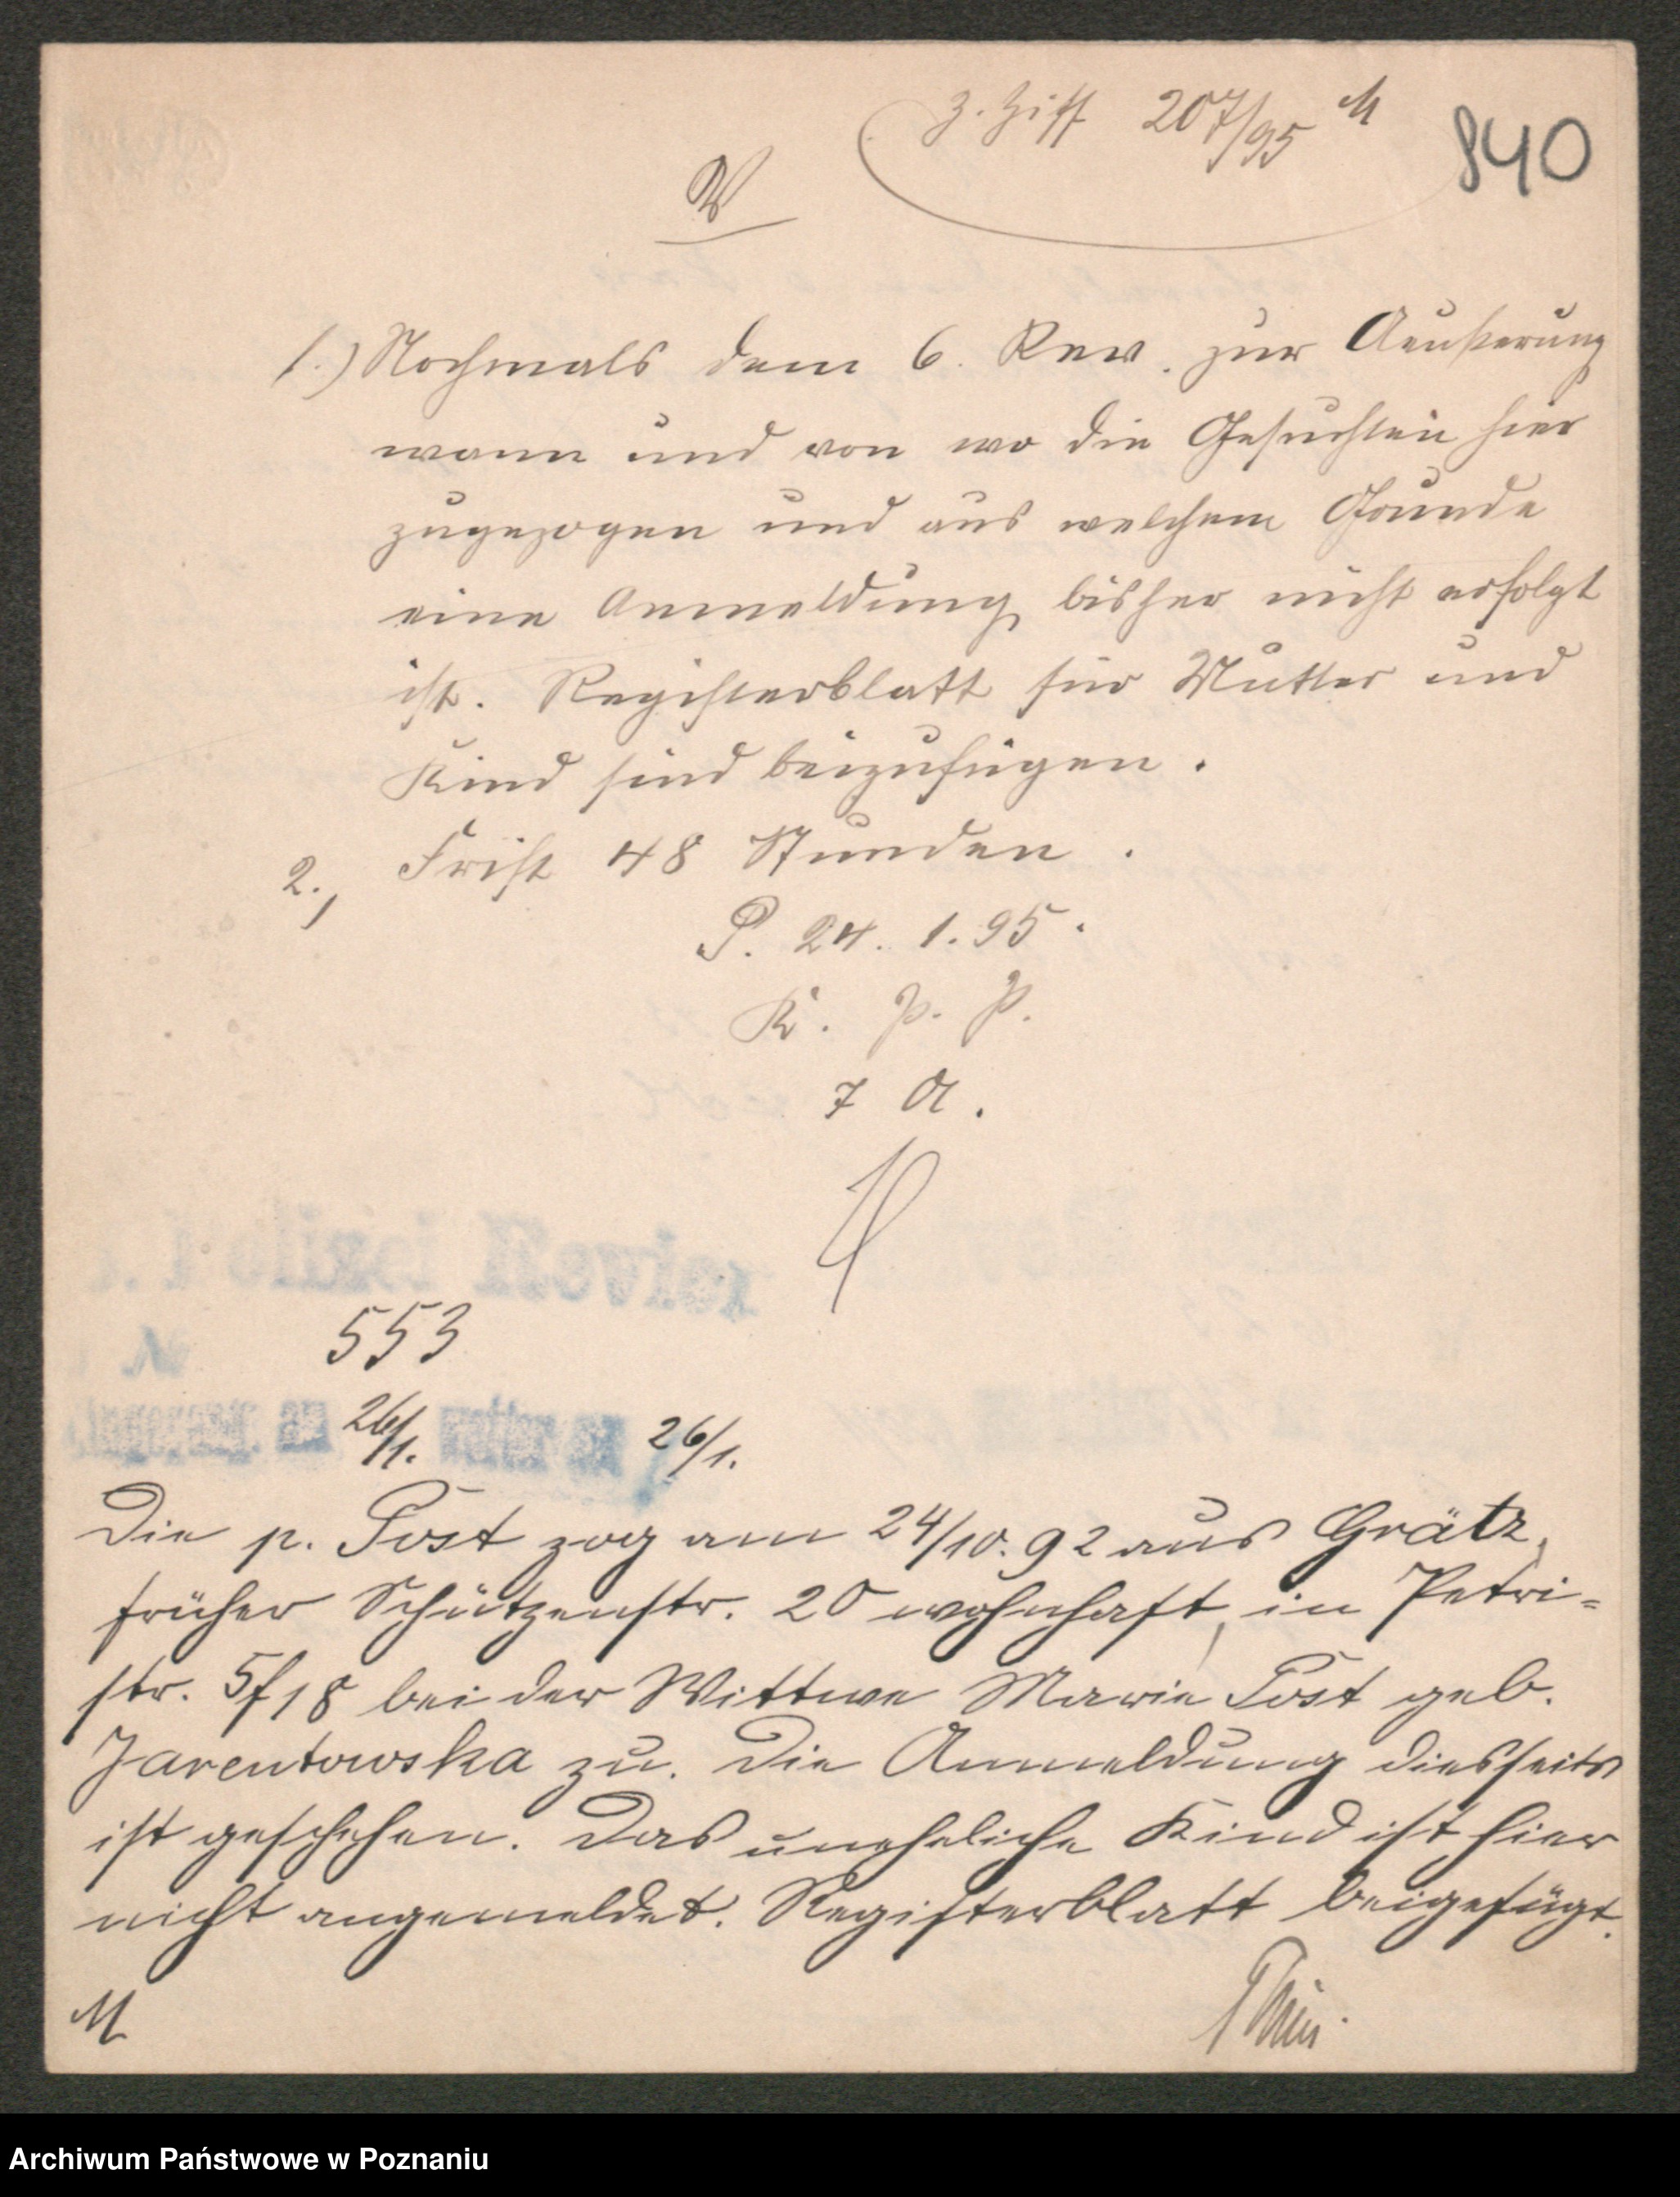 z. Ziff 207/95 M
840
V
1.) Nochmals dem 6. Rev. zur Aeußerung
wann und von wo die Gesuchten hier
zugezogen und aus welchem Grunde
eine Anmeldung bisher nicht erfolgt
ist. Registerblatt für Mutter und
Kind sind beizufügen.
2., Frist 48 Stunden.
P. 24. 1. 95.
K. P. P.
7 A.
553
26/1. 26/1.
Die p. Post zog am 24/10. 92 aus Grätz,
früher Schützenstr. 20 wohnhaft, in Petri-
str. 5/18 bei der Wittwe Marie Post geb.
Jarentowska zu. Die Anmeldung diesseits
ist geschehen. Das uneheliche Kind ist hier
nicht angemeldet. Registerblatt beigefügt.
M
Archiwum Państwowe w Poznaniu